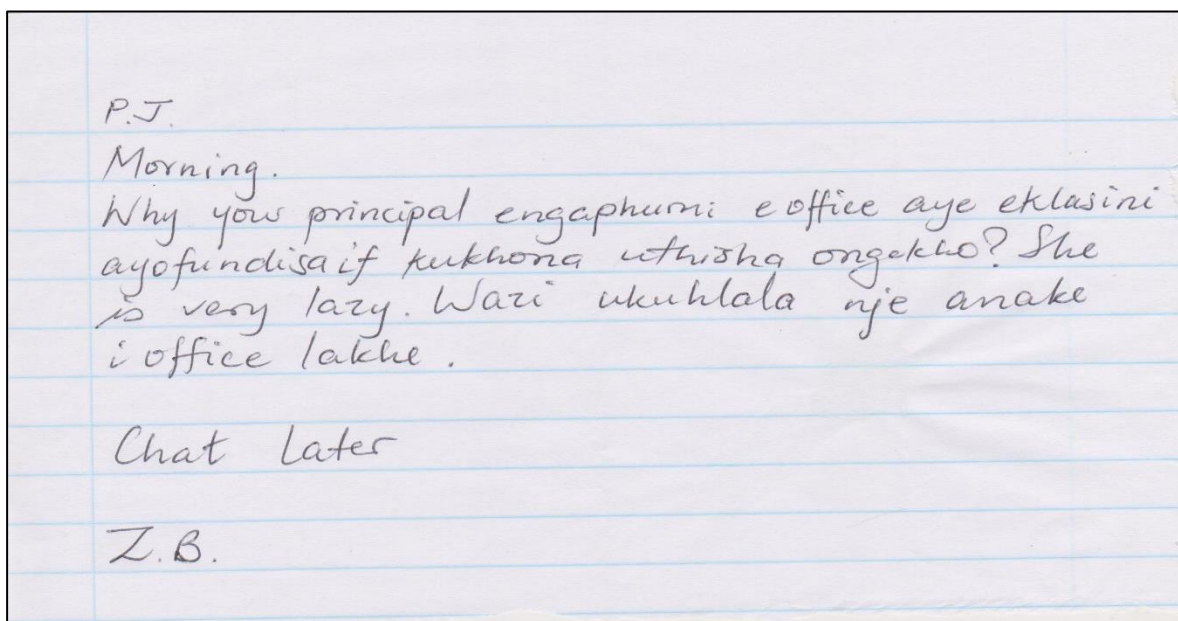 P.J.
Morning.
Why your principal engaphumi eoffice aye eklasini
ayofundisa if kukhona uthisha ongekho? She
is very lazy. Wazi ukuhlala nje anake
i office lakhe.
Chat Later
Z.B.